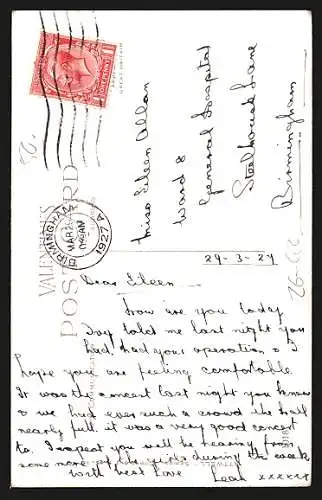 Miss Eileen Allan
Ward 8
General Hospital
Steelhouse Lane
Birmingham
BIRMINGHAM
MAR 29
1927
GREAT BRITAIN
VALENTINE'S
POST CARD
29-3-27
Dear Eileen
How are you today
Ivy told me last night you
had had your operation & I
hope you are feeling comfortable
It was the concert last night you know
& we had ever such a crowd the hall
nearly full it was a very good concert
to. I expect you will be hearing from
some more of the girls during the week
With best love Leah xxxxxx